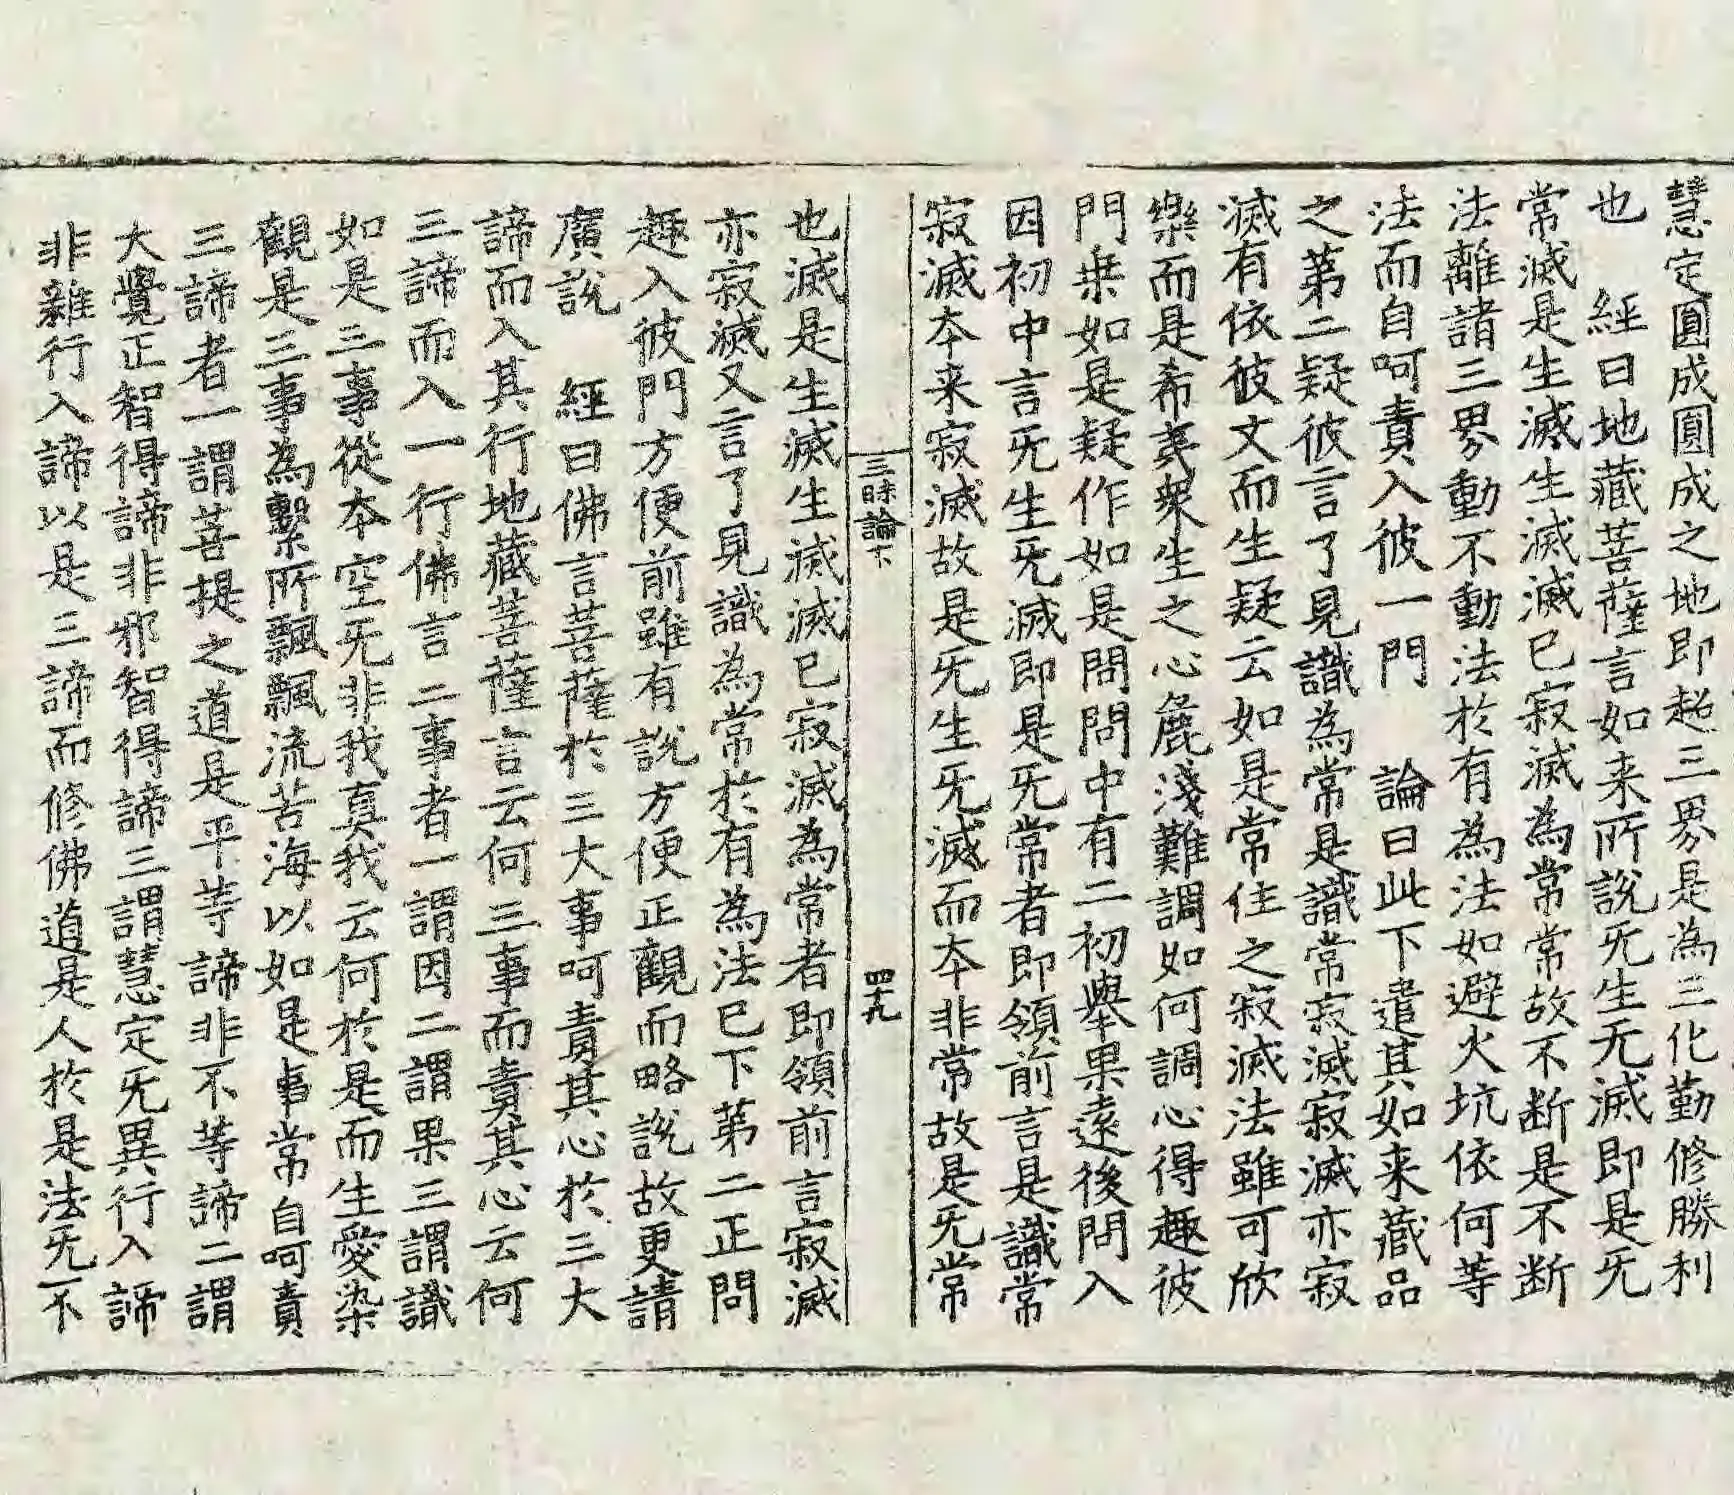 慧定圓成圓成之地即超三界是為三化勤修勝利
也　經曰地藏菩薩言如来所說旡生旡滅即是旡
常滅是生滅生滅滅已寂滅為常常故不断是不断
法離諸三界動不動法於有為法如避火坑依何等
法而自呵責入彼一門　論曰此下遣其如来藏品
之第二疑彼言了見識為常是識常寂滅寂滅亦寂
滅有依彼文而生疑云如是常住之寂滅法雖可欣
樂而是希夷衆生之心麁淺難調如何調心得趣彼
門乗如是疑作如是問問中有二初舉果遠後問入
因初中言旡生旡滅即是旡常者即領前言是識常
寂滅夲来寂滅故是旡生旡滅而夲非常故是旡常
三昧論下　四十九
也滅是生滅生滅滅已寂滅為常者即領前言寂滅
亦寂滅又言了見識為常於有為法已下第二正問
趣入彼門方便前雖有說方便正觀而略說故更請
廣說　經曰佛言菩薩於三大事呵責其心於三大
諦而入其行地藏菩薩言云何三事而責其心云何
三諦而入一行佛言二事者一謂因二謂果三謂識
如是三事從夲空旡非我真我云何於是而生愛染
觀是三事為繫所飄飄流苦海以如是事常自呵責
三諦者一謂菩提之道是平等諦非不等諦二謂
大覺正智得諦非邪智得諦三謂慧定旡異行入諦
非雜行入諦以是三諦而修佛道是人於是法旡不